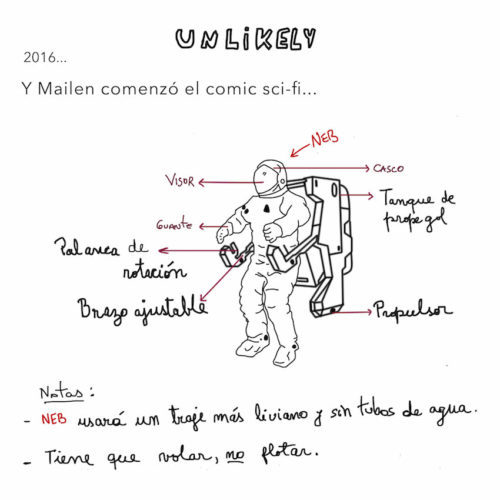 UNLIKELY
2016...
Y Mailen comenzó el comic sci-fi...
NEB
VISOR
CASCO
Tanque de
propegol
GUANTE
Palanca de
rotación
Brazo ajustable
Propulsor
Notas:
- NEB usará un traje más liviano y sin tubos de agua.
- Tiene que volar, no flotar.